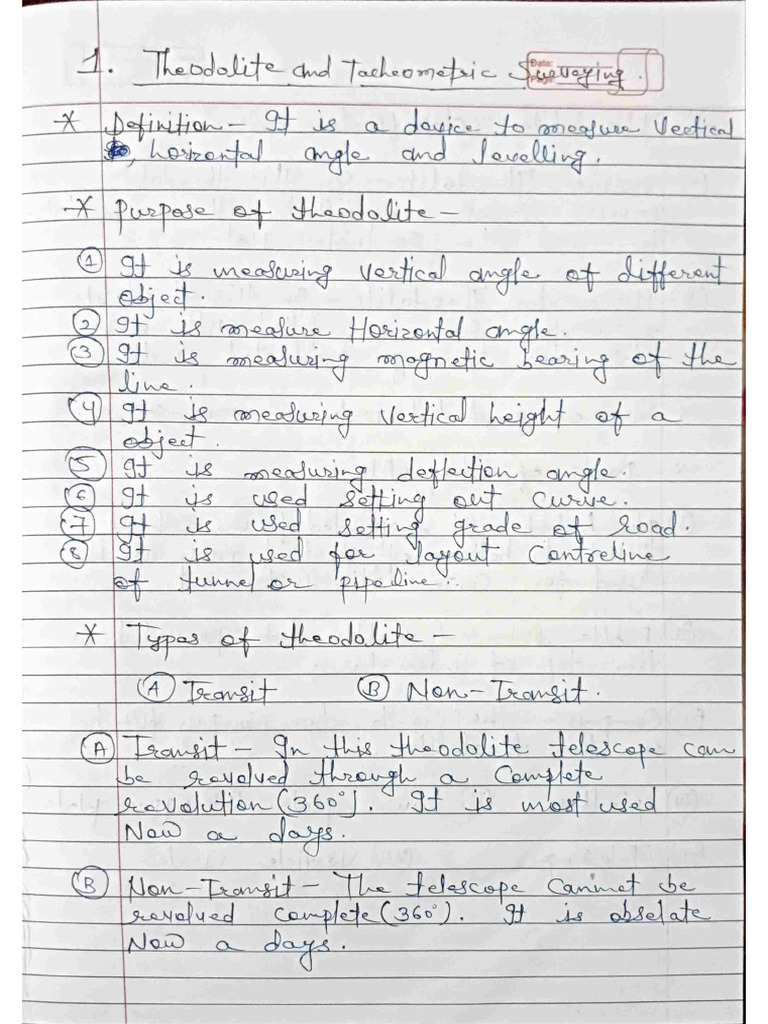 1. Theodolite and Tacheometric Surveying.
Date:
Page:
* Definition - It is a device to measure vertical
, horizontal angle and levelling.
* Purpose of theodolite -
1 It is measuring vertical angle of different
object.
2 It is measure Horizontal angle.
3 It is measuring magnetic bearing of the
line.
4 It is measuring vertical height of a
object.
5 It is measuring deflection angle.
6 It is used setting out curve.
7 It is used setting grade of road.
8 It is used for layout Centreline
of tunnel or pipeline.
* Types of theodolite -
A Transit B Non-Transit.
A Transit - In this theodolite telescope can
be revolved through a Complete
revolution (360°). It is most used
Now a days.
B Non-Transit - The telescope cannnot be
revolved complete (360°). It is obselate
Now a days.